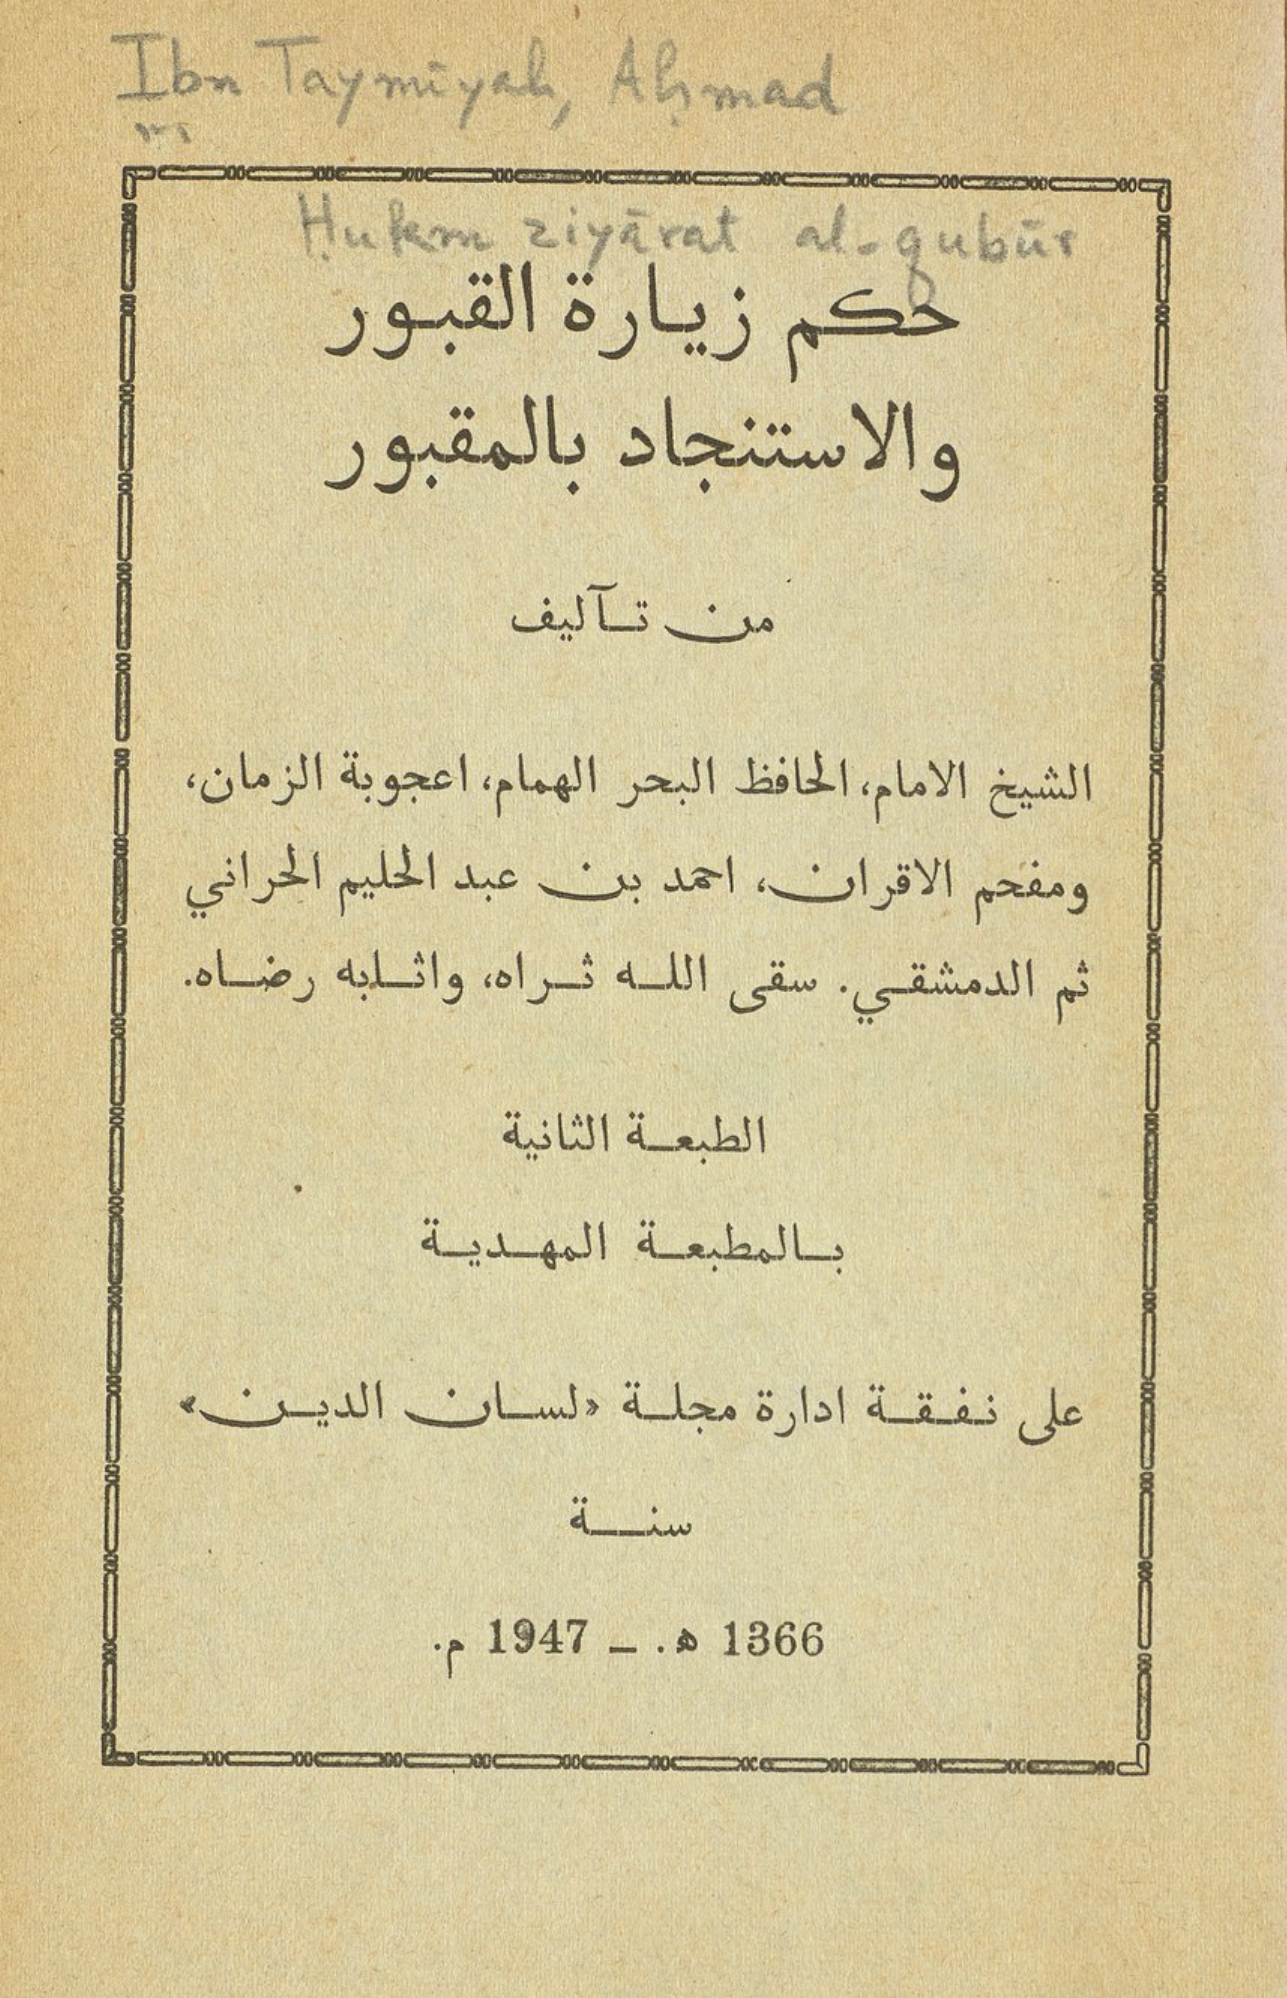 Ibn Taymīyah, Aḥmad
Ḥukm ziyārat al-qubūr
حكم زيارة القبور
والاستنجاد بالمقبور
من تآليف
الشيخ الامام، الحافظ البحر الهمام، اعجوبة الزمان،
ومفحم الاقران، احمد بن عبد الحليم الحراني
ثم الدمشقي. سقى الله ثراه، واثابه رضاه.
الطبعة الثانية
بالمطبعة المهدية
على نفقة ادارة مجلة «لسان الدين»
سنة
1366 ه. ــ 1947 م.